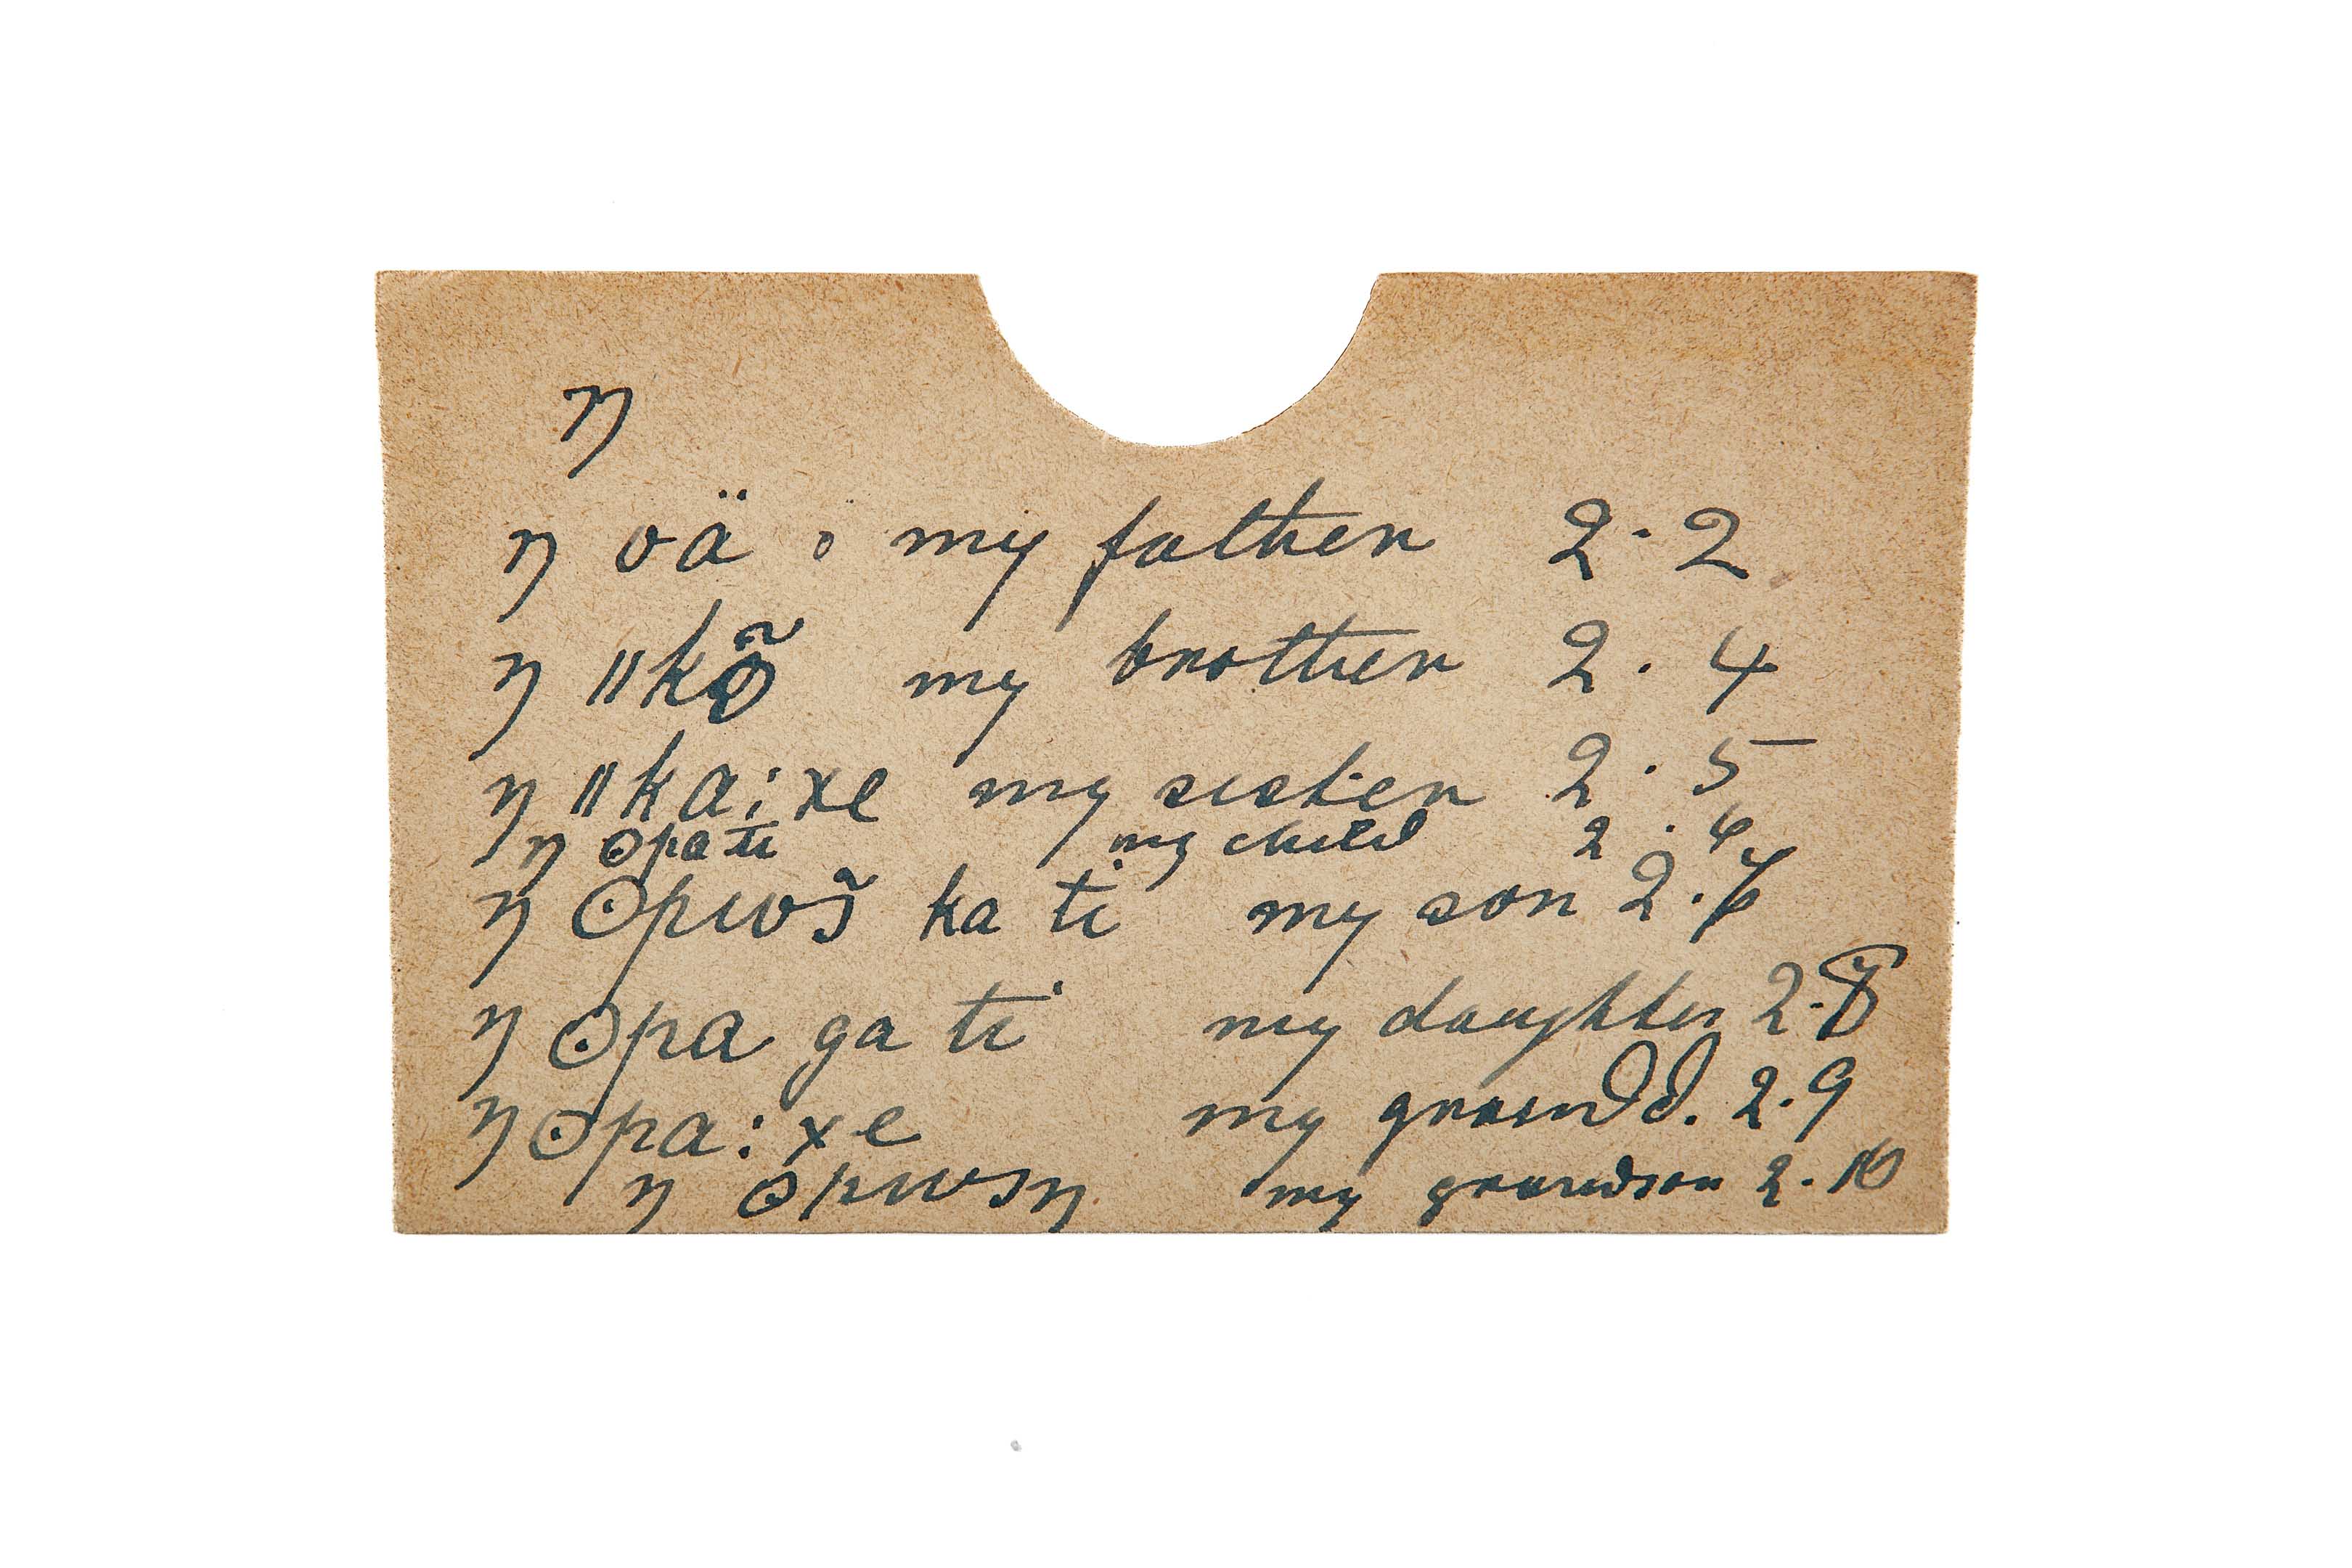 ŋ
ŋ oä : my father 2·2
ŋ ǁkõ my brother 2·4
ŋ ǁka:xe my sister 2·5
ŋ ʘpa ti my child 2·6
ŋ ʘpwɔ̃ ka ti my son 2·7
ŋ ʘpa ga ti my daughter 2·8
ŋ ʘpa:xe my grandd. 2·9
ŋ ʘpwɔŋ my grandson 2·10